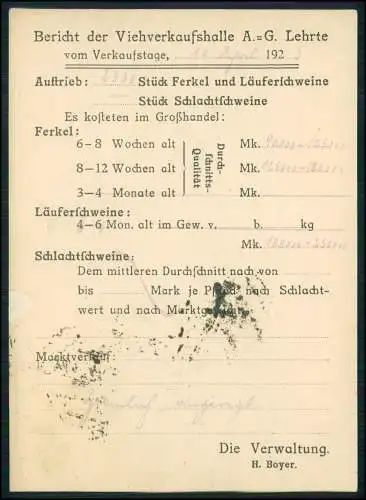 Bericht der Viehverkaufshalle A.=G. Lehrte
vom Verkaufstage, 192
Auftrieb: Stück Ferkel und Läuferschweine
Stück Schlachtschweine
Es kosteten im Großhandel:
Ferkel:
6–8 Wochen alt Mk.
8–12 Wochen alt Mk.
3–4 Monate alt Mk.
Durch-
schnitts-
Qualität
Läuferschweine:
4–6 Mon. alt im Gew. v. b. kg
Mk.
Schlachtschweine:
Dem mittleren Durchschnitt nach von
bis Mark je nach Schlacht-
wert und nach
Die Verwaltung.
H. Boyer.